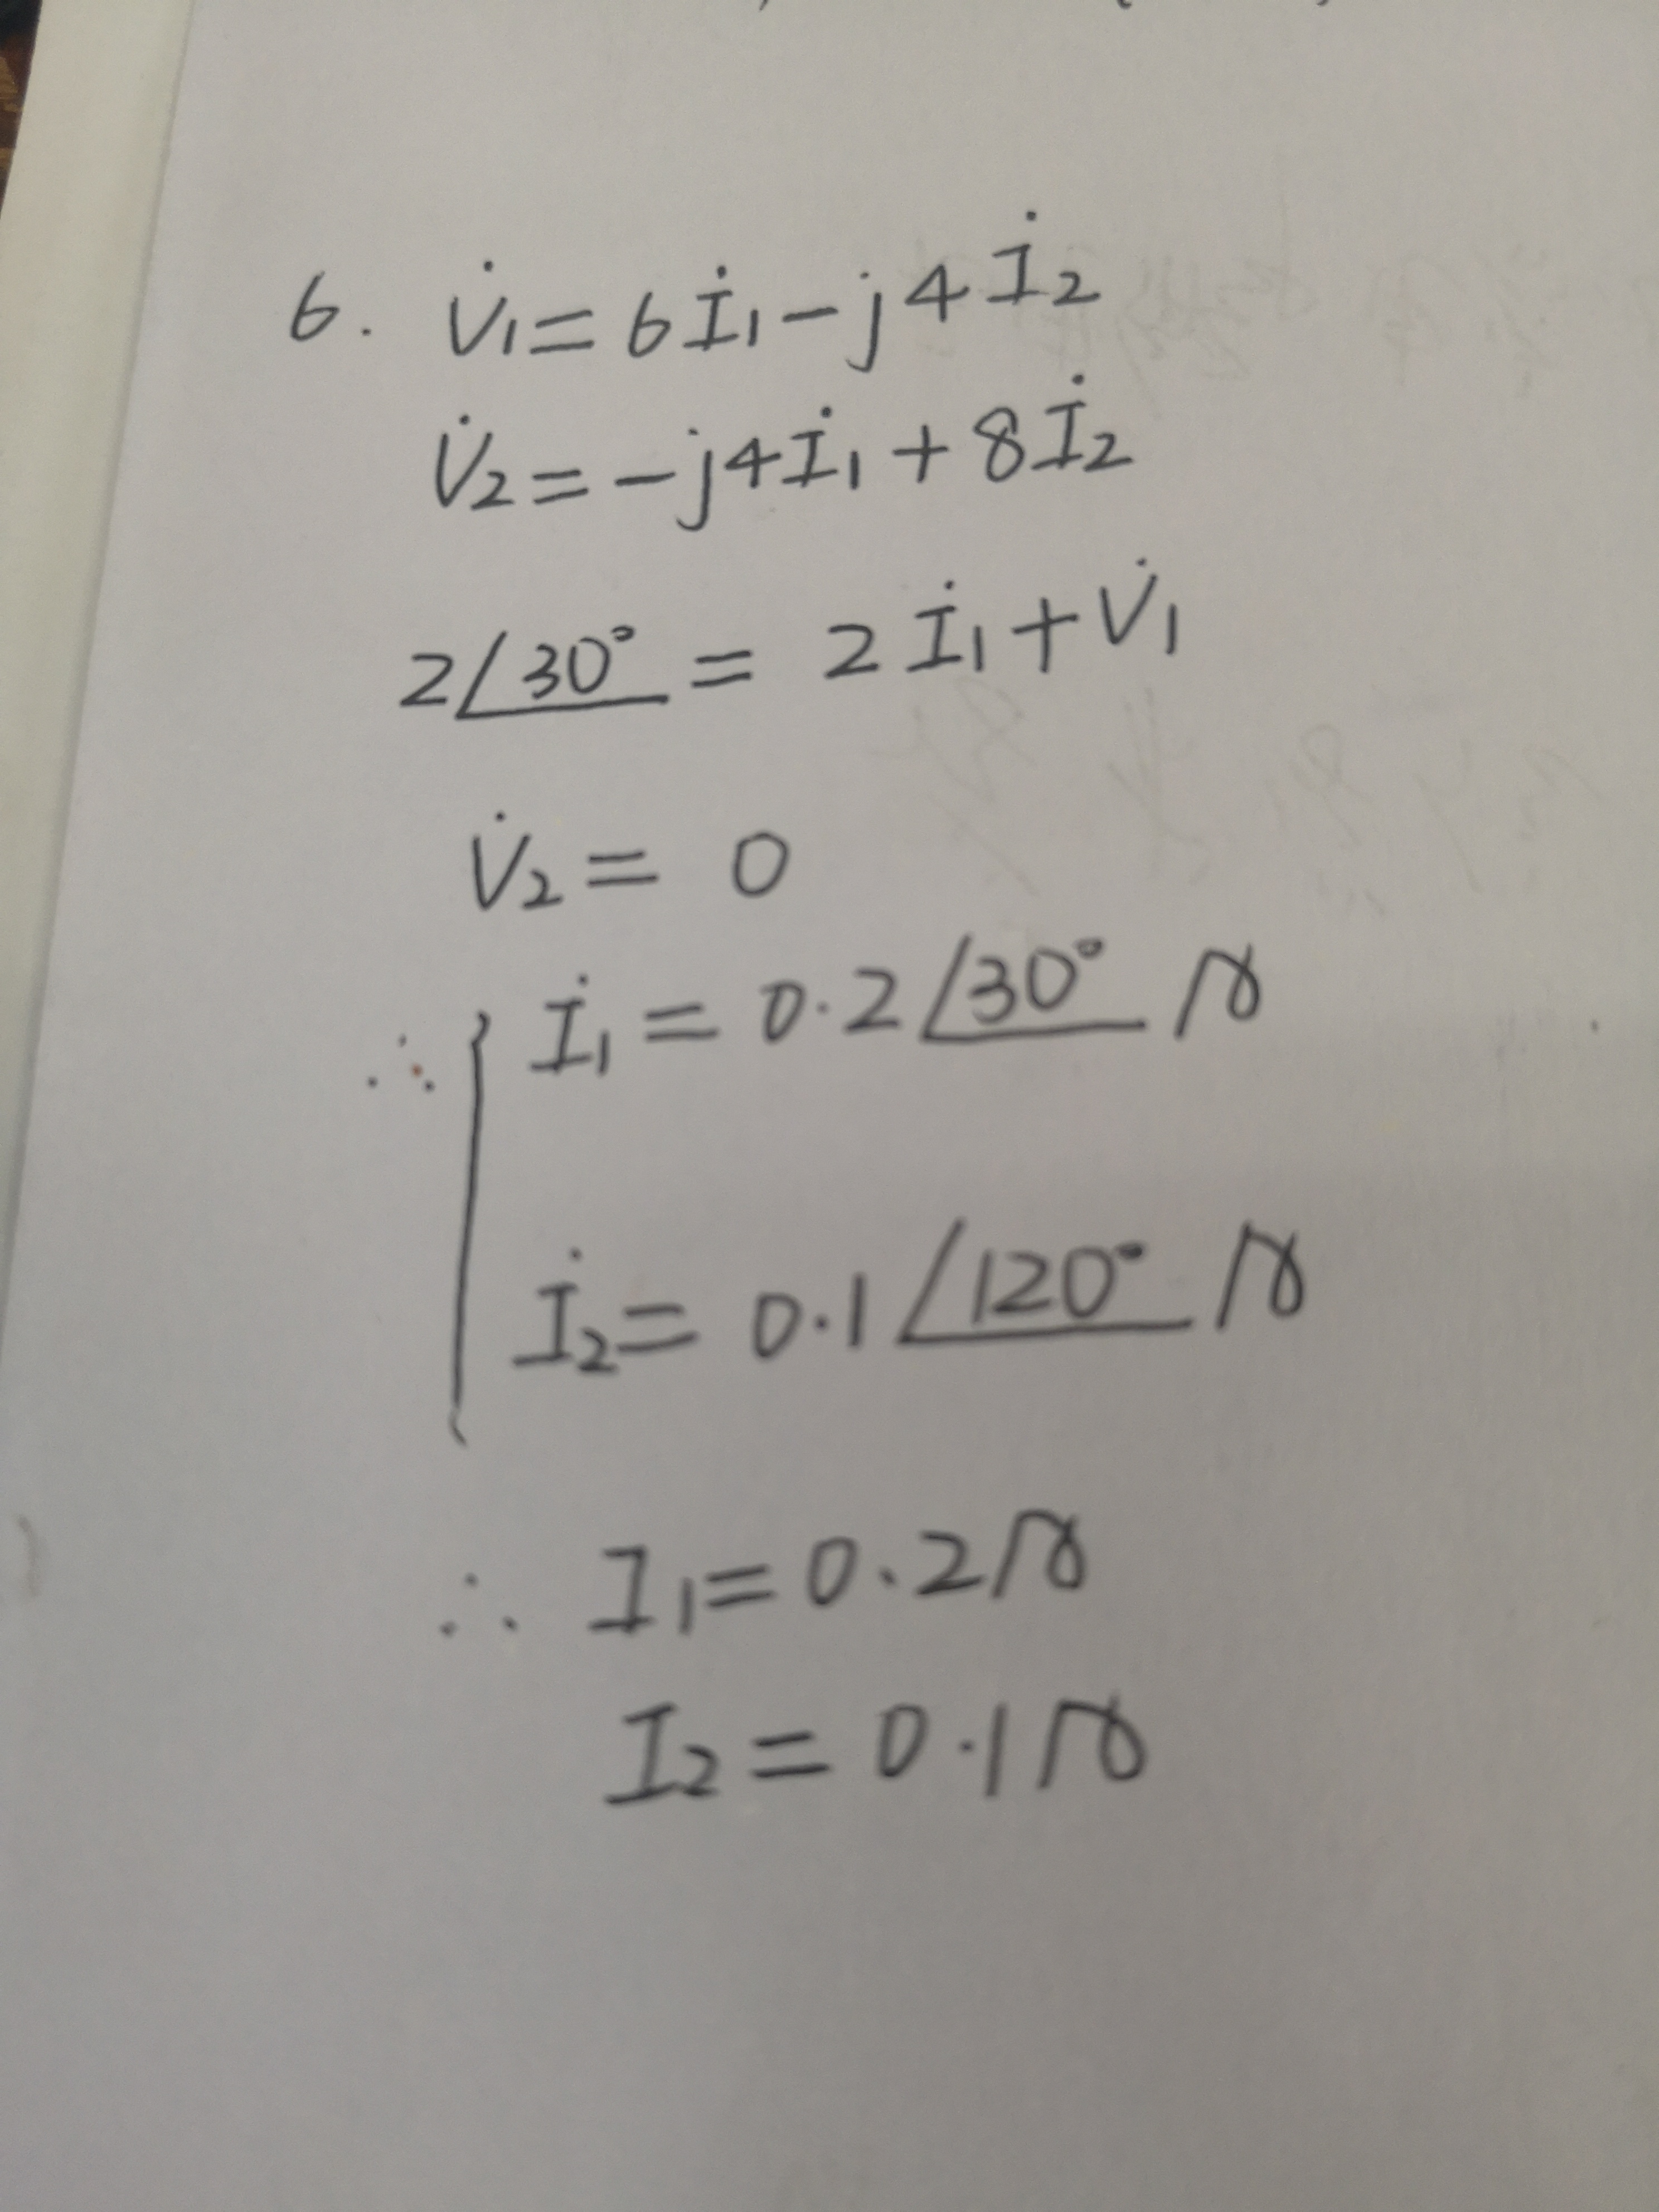 6. V̇₁ = 6İ₁ - j4İ₂
V̇₂ = -j4İ₁ + 8İ₂
2∠30° = 2İ₁ + V̇₁
V̇₂ = 0
∴ { İ₁ = 0.2∠30° A
İ₂ = 0.1∠120° A
∴ I₁ = 0.2A
I₂ = 0.1A